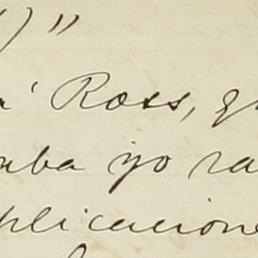 )"
a' Ross, q
aba yo ra
plicacione